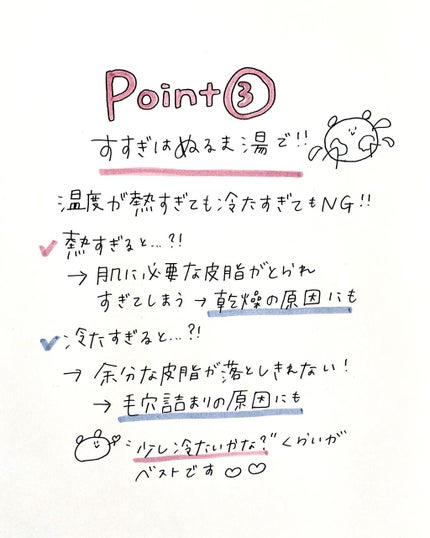 Point③
すすぎはぬるま湯で!!
温度が熱すぎても冷たすぎてもNG!!
熱すぎると...?!
→ 肌に必要な皮脂がとられ
すぎてしまう → 乾燥の原因にも
冷たすぎると...?!
→ 余分な皮脂が落としきれない!
→ 毛穴詰まりの原因にも
"少し冷たいかな?"くらいが
ベストです♡♡